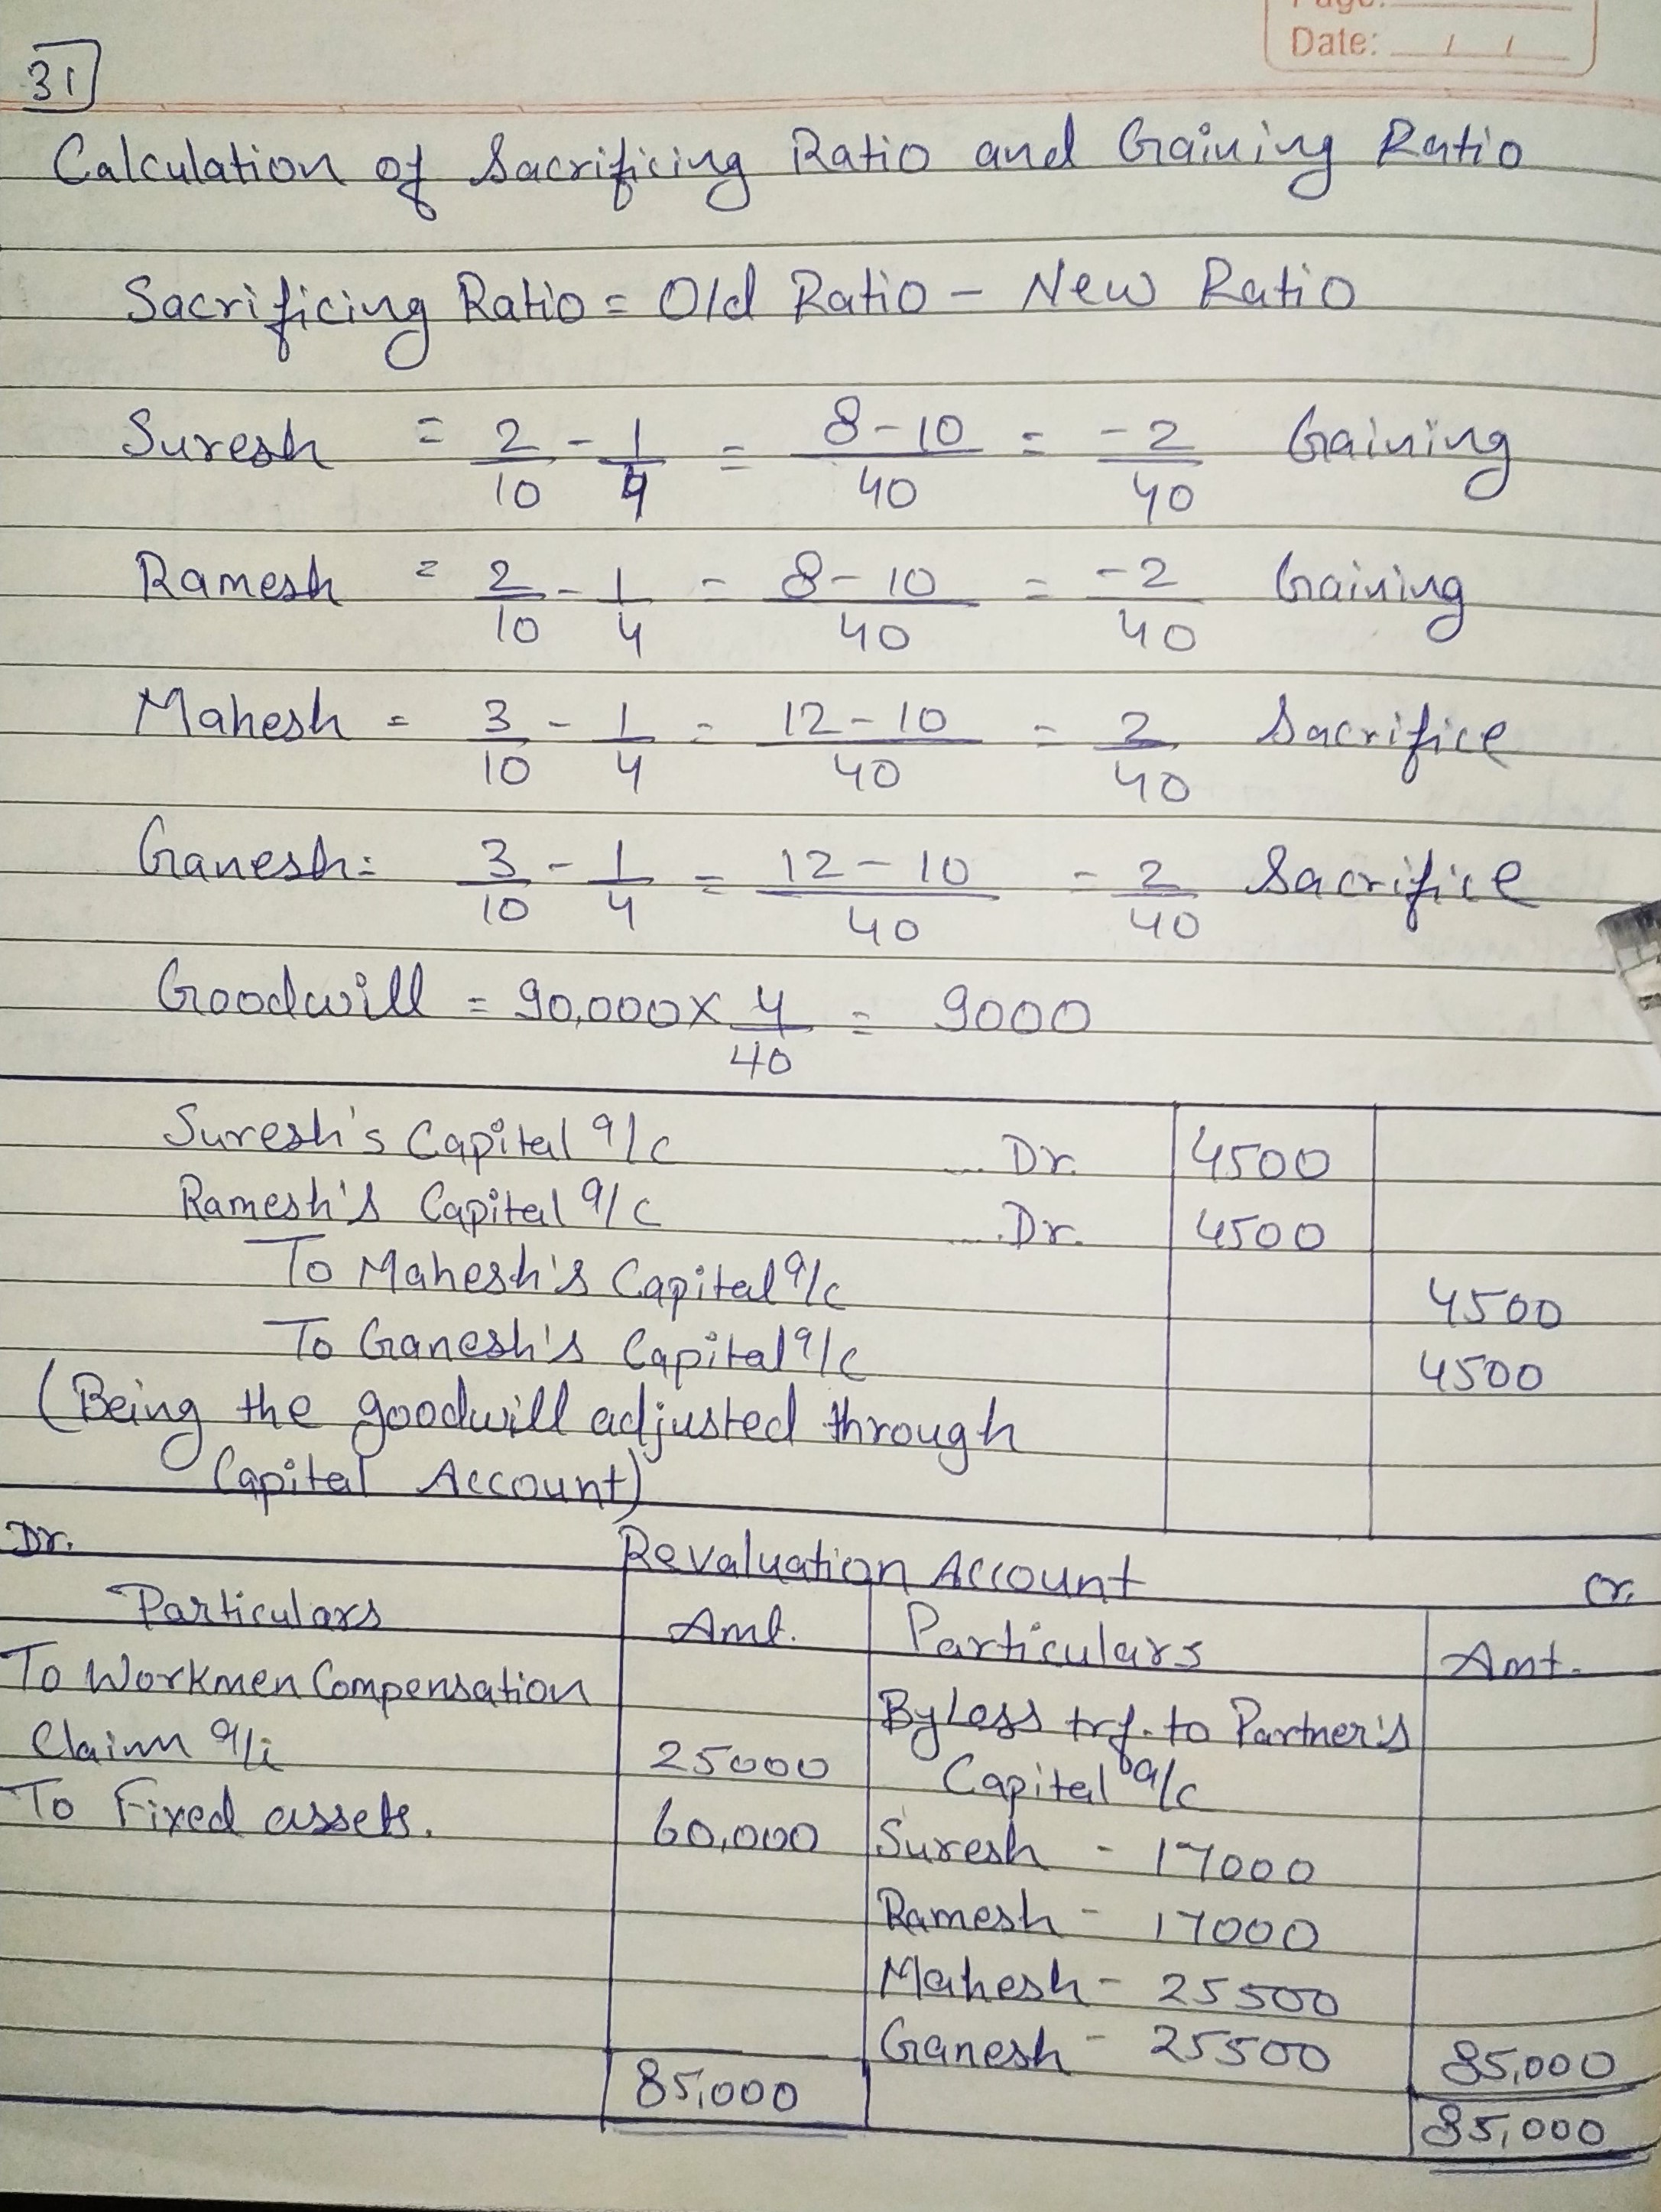 Date: / /
31
Calculation of Sacrificing Ratio and Gaining Ratio
Sacrificing Ratio = Old Ratio - New Ratio
Suresh = 2/10 - 1/4 = 8-10/40 = -2/40 Gaining
Ramesh = 2/10 - 1/4 = 8-10/40 = -2/40 Gaining
Mahesh = 3/10 - 1/4 = 12-10/40 = 2/40 Sacrifice
Ganesh = 3/10 - 1/4 = 12-10/40 = 2/40 Sacrifice
Goodwill = 90,000 x 4/40 = 9000
Suresh's Capital a/c ... Dr. 4500
Ramesh's Capital a/c ... Dr. 4500
To Mahesh's Capital a/c 4500
To Ganesh's Capital a/c 4500
(Being the goodwill adjusted through
Capital Account)
Dr. Revaluation Account Cr.
Particulars Amt. Particulars Amt.
To Workmen Compensation By Loss trf. to Partner's
Claim a/c 25000 Capital a/c
To Fixed assets. 60,000 Suresh - 17000
Ramesh - 17000
Mahesh - 25500
Ganesh - 25500 85,000
85,000 85,000